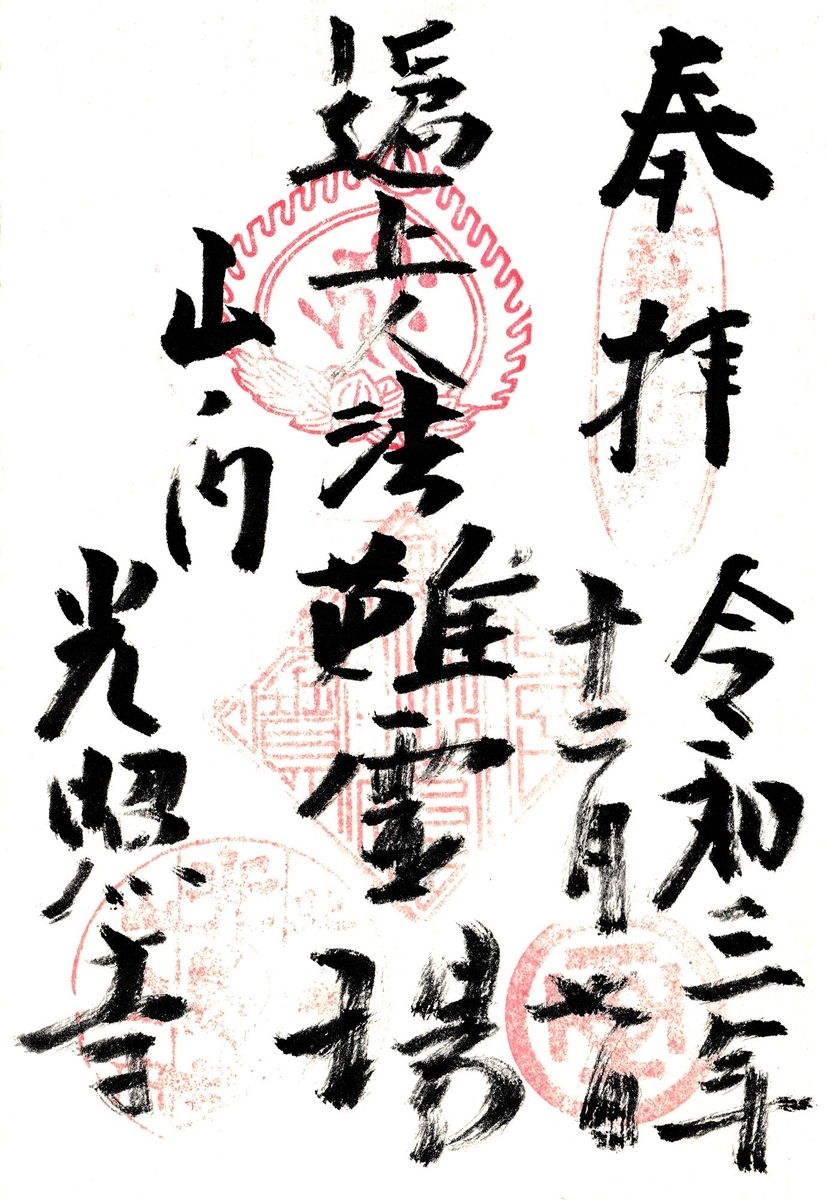 奉拝
令和三年
十二月七日
遍上人法難霊場
山ノ内
光照寺